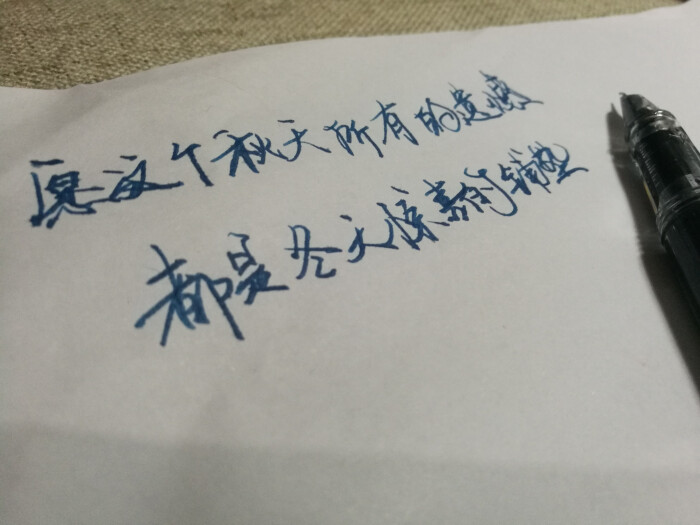 愿这个秋天所有的遗憾
都是冬天惊喜的铺垫